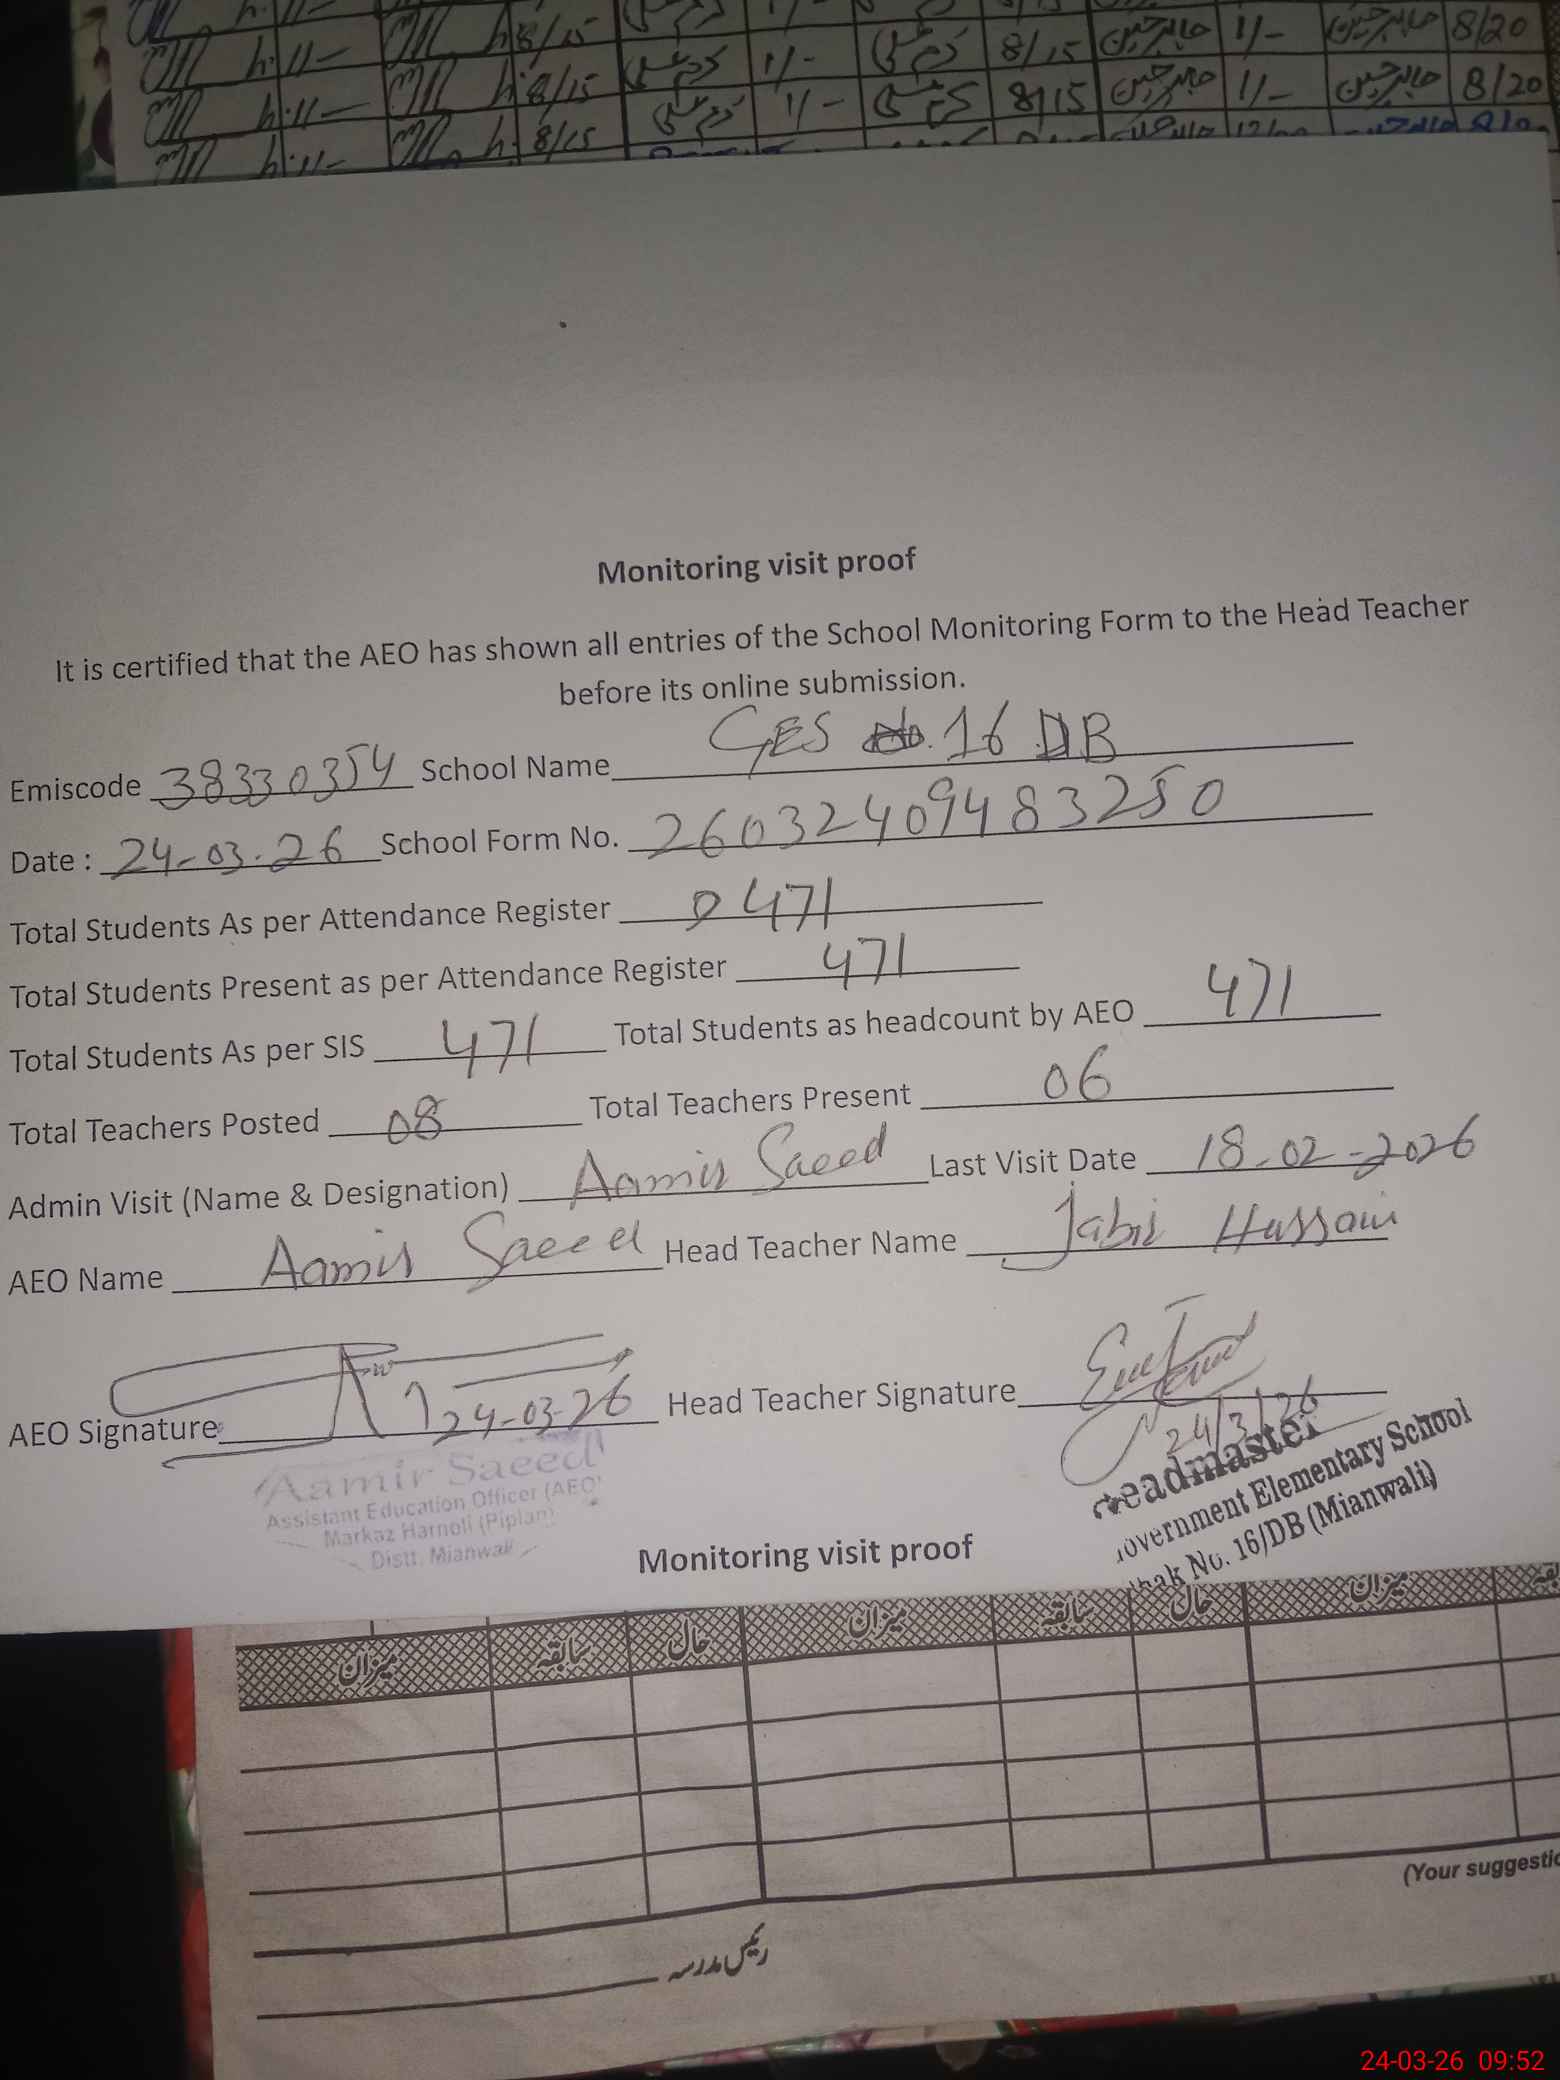 8/15 1/- 8/15 جابر حسین 1/- جابر حسین 8/20
8/15 1/- 8/15 جابر حسین 1/- جابر حسین 8/20
8/15
Monitoring visit proof
It is certified that the AEO has shown all entries of the School Monitoring Form to the Head Teacher
before its online submission.
Emiscode 38330354 School Name GES No. 16 DB
Date : 24-03-26 School Form No. 26032409483250
Total Students As per Attendance Register 471
Total Students Present as per Attendance Register 471
Total Students As per SIS 471 Total Students as headcount by AEO 471
Total Teachers Posted 08 Total Teachers Present 06
Admin Visit (Name & Designation) Aamir Saeed Last Visit Date 18-02-2026
AEO Name Aamir Saeed Head Teacher Name Jabir Hussain
AEO Signature 24-03-26 Head Teacher Signature 24/3/26
Aamir Saeed
Assistant Education Officer (AEO)
Markaz Harnoli (Piplan)
Distt. Mianwali
eadmaster
overnment Elementary School
hak No. 16/DB (Mianwali)
Monitoring visit proof
میزان سابقہ حال میزان سابقہ حال میزان
(Your suggestio
رئیس مدرسہ
24-03-26 09:52